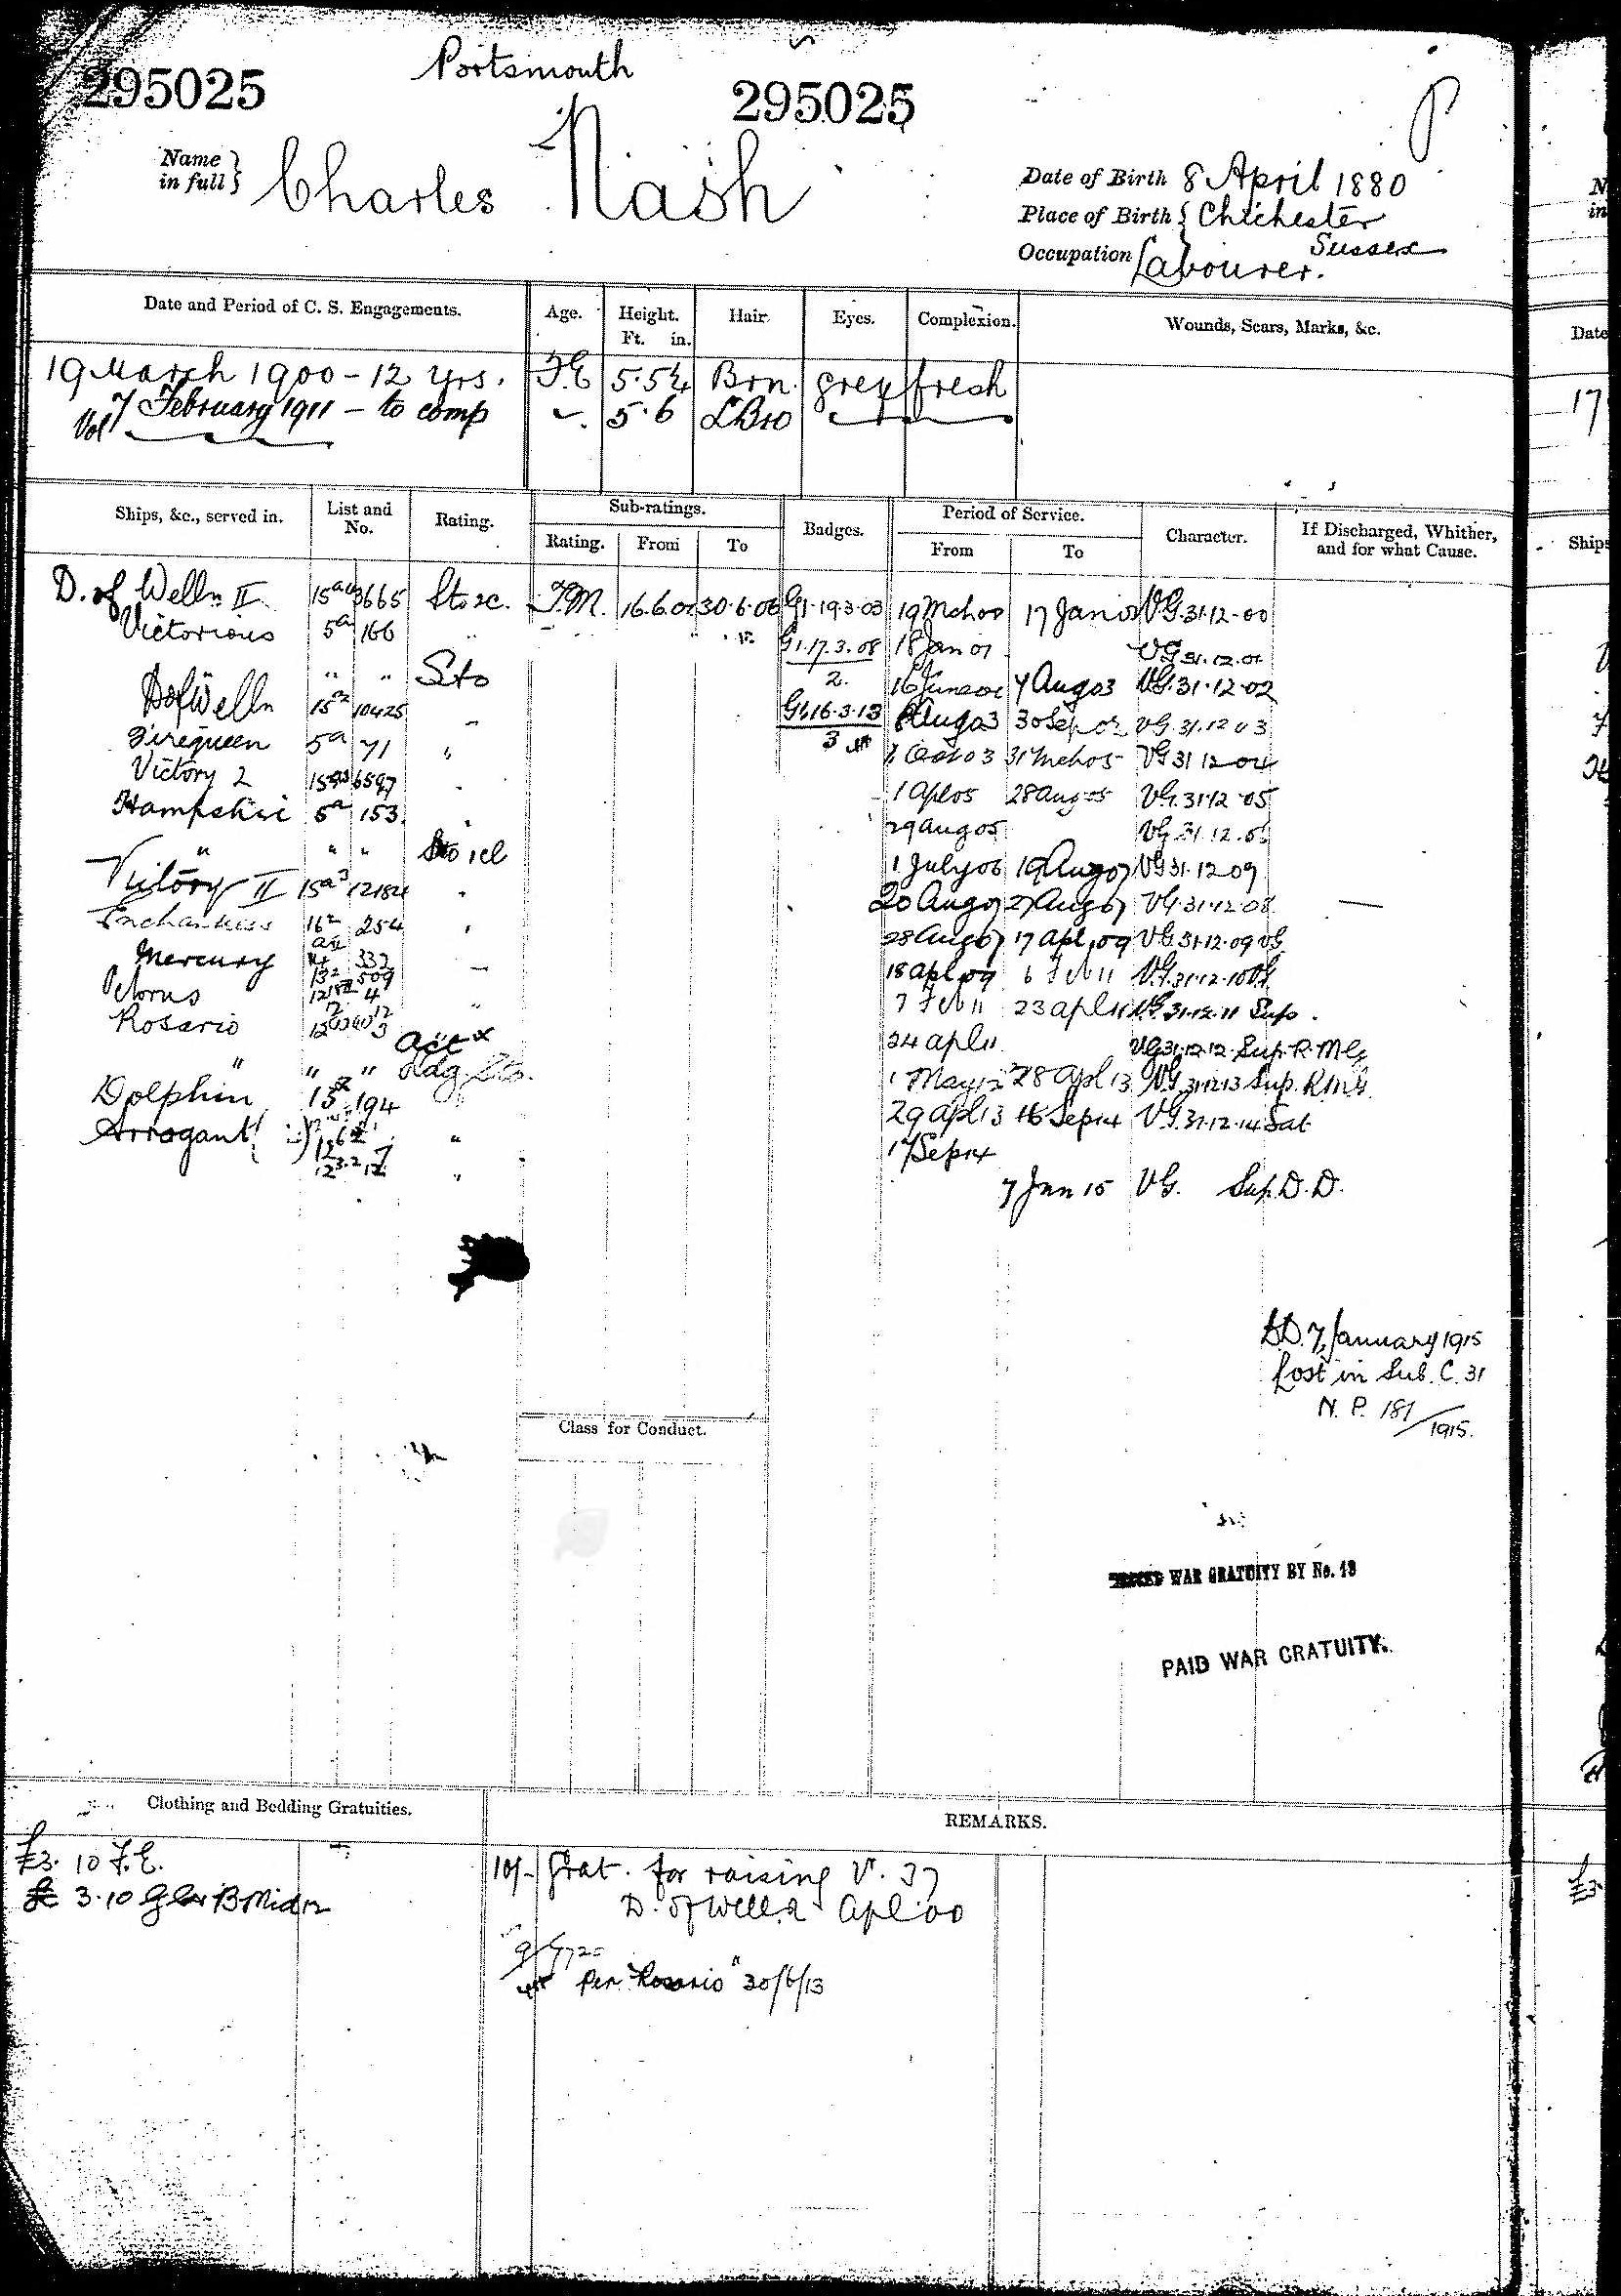 Portsmouth
295025 295025
Name in full } Charles Nash
Date of Birth 8 April 1880
Place of Birth { Chichester
Sussex
Occupation Labourer.
Date and Period of C. S. Engagements. Age. Height. Ft. in. Hair. Eyes. Complexion. Wounds, Scars, Marks, &c.
19 March 1900 - 12 yrs. 5.5¼ Brn. grey fresh
Vol 7 February 1911 - to comp 5.6 LBro
Ships, &c., served in. List and No. Rating. Sub-ratings. Badges. Period of Service. Character. If Discharged, Whither, and for what Cause.
Rating. From To From To
D. of Welln II 3665 Sto 2c. T.M. 30.6.06 G1.19.3.03 17 Jan VG.31.12.00
Victorious 5a 166 " G1.17.3.08 18 Jan 01 VG 31.12.01
2.
" " " Sto 7 Aug 03 VG.31.12.02
DofWelln 15a2 10425 G1.16.3.13 8 Aug 03 30 Sep 03 VG.31.12 03
3
Firequeen 5a 71 " 1 Oct 03 31 Mch 05 VG 31 12 04
Victory 2 1 Apl 05 28 Aug 05 VG.31.12.05
Hampshire 5a 153. 29 Aug 05 VG.31.12.06
" " " Sto 1cl 1 July 06 19 Aug 07 VG 31.12 09
Victory II 15a3 12184 20 Aug 07 27 Aug 07 VG.31.12.08
16 254 28 Aug 07 17 Apl 09 VG.31.12.09 VG
Mercury 332 18 Apl 09 6 Feb 11 VG.31.12.10 VG
509 7 Feb 11 23 Apl 11 VG.31.12.11 Sup.
Rosario 24 Apl 11 VG 31.12.12. Sup. R.M.G
Act
" " " Ldg Sto. 1 May 12 28 Apl 13 VG.31.12.13 Sup. R.M.G
Dolphin 15 194 29 Apl 13 16 Sep 14 VG.31.12.14 Sat
Arrogant " 17 Sep 14
7 Jan 15 VG. Sup. D.D.
D.D. 7, January 1915
Lost in Sub. C. 31
N. P. 181/1915.
Class for Conduct.
WAR GRATUITY BY No.
PAID WAR GRATUITY.
Clothing and Bedding Gratuities. REMARKS.
£3. 10 F.E.
£ 3.10
10/- Grat. for raising V. 37
D. of Well. 2 Apl 00
per "Rosario" 30/6/13
Date
17
Ships
£3.